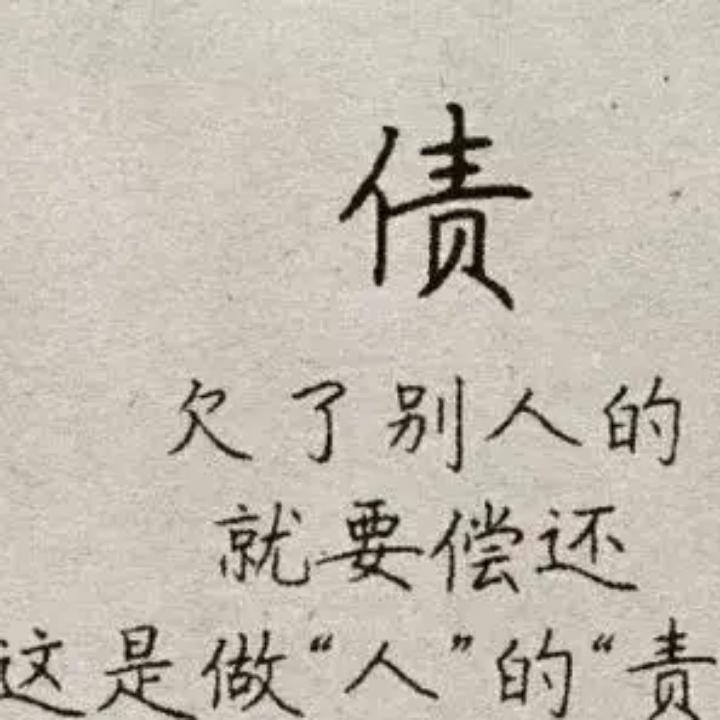 债
欠了别人的
就要偿还
这是做“人”的“责